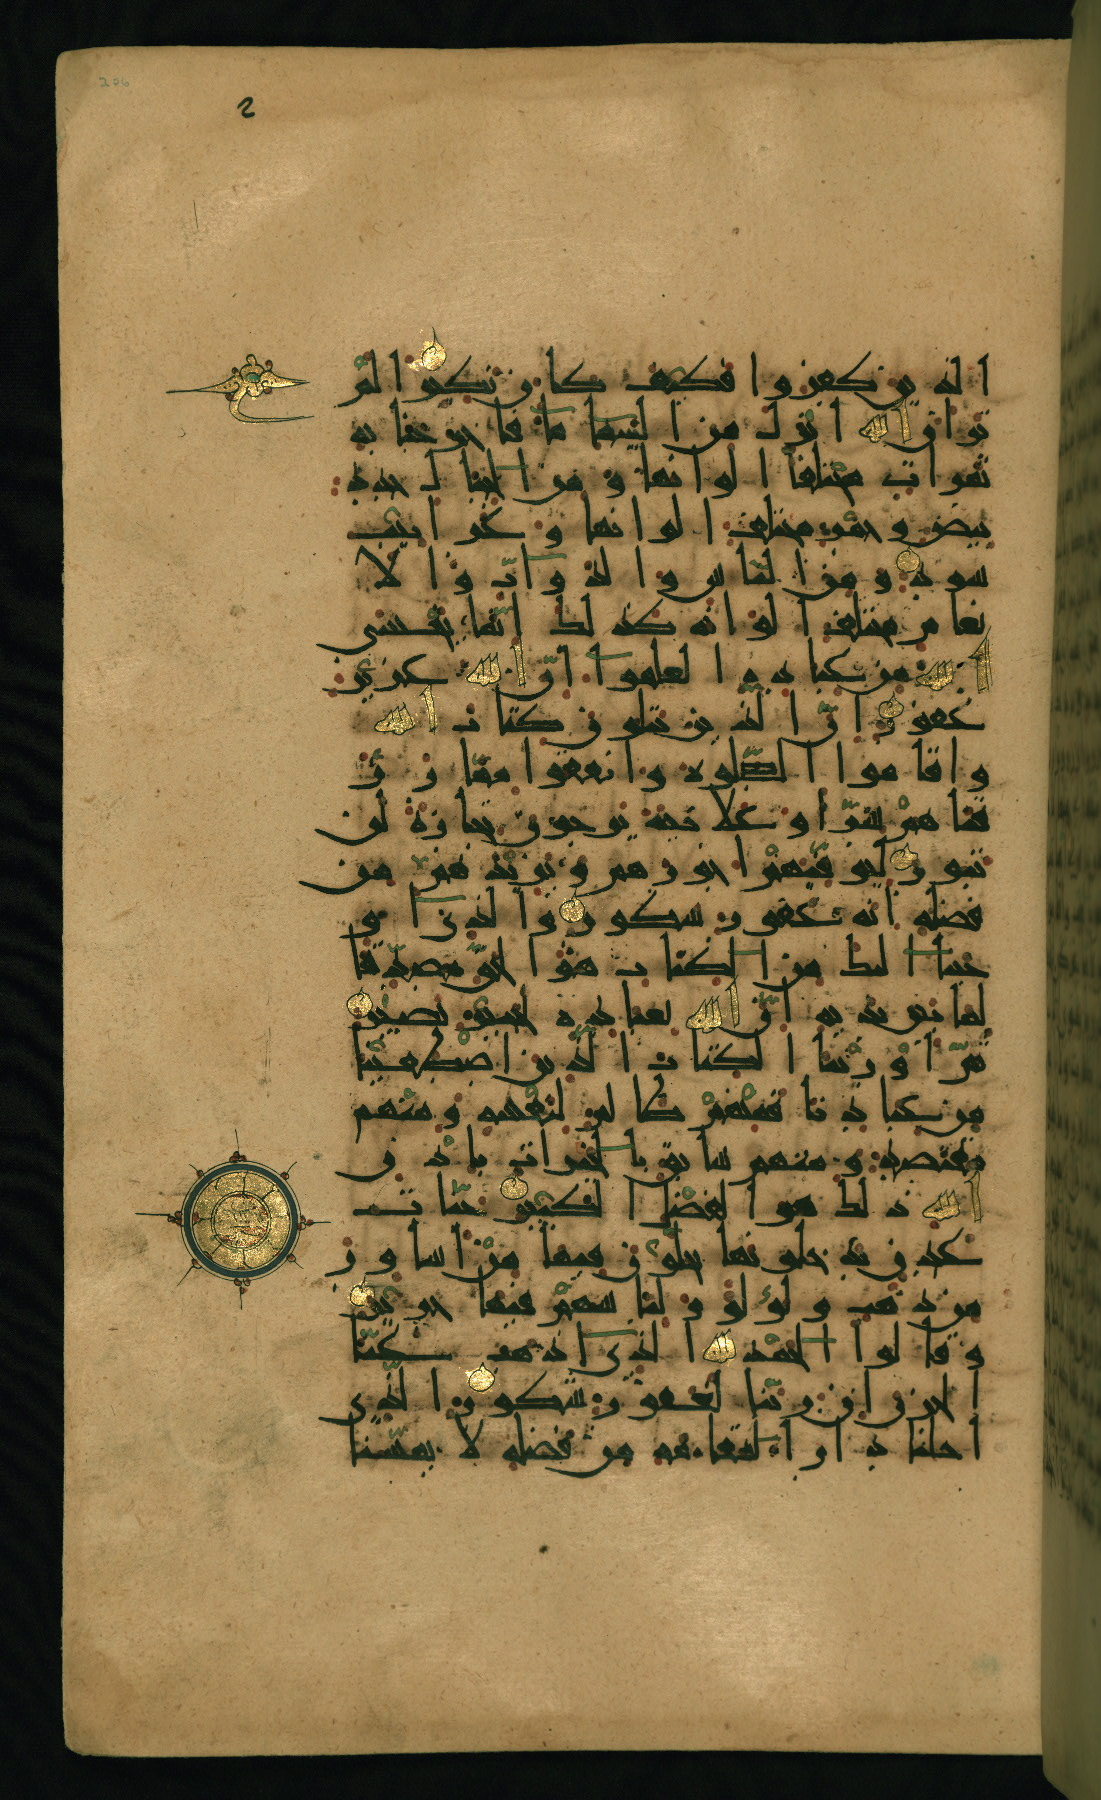 206
2
الذين كفروا فكيف كان نكير الم
تر ان الله انزل من السما ما فاخرجنا به
ثمرات مختلفا الوانها و من الجبال جدد
بيض و حمر مختلف الوانها و غرابيب
سود و من الناس و الدواب و الا
نعام مختلف الوانه كذلك انما يخشى
الله من عباده العلموا ان الله عزيز
غفور ان الذين يتلون كتاب الله
و اقاموا الصلوة و انفقوا مما رز
قناهم سرا و علانية يرجون تجارة لن
تبور ليوفيهم اجورهم و يزيدهم من
فضله انه غفور شكور و الذى او
حينا اليك من الكتاب هو الحق مصدقا
لما بين يديه ان الله بعباده لخبير بصير
ثم اورثنا الكتاب الذين اصطفينا
من عبادنا فمنهم ظالم لنفسه و منهم
مقتصد و منهم سابق بالخيرات باذن
الله ذلك هو الفضل الكبير جنات
عدن يدخلونها يحلون فيها من اساور
من ذهب و لؤلؤ و لباسهم فيها حرير
و قالوا الحمد لله الذى اذهب عنا
الحزن ان ربنا لغفور شكور الذى
احلنا دار المقامة من فضله لا يمسنا